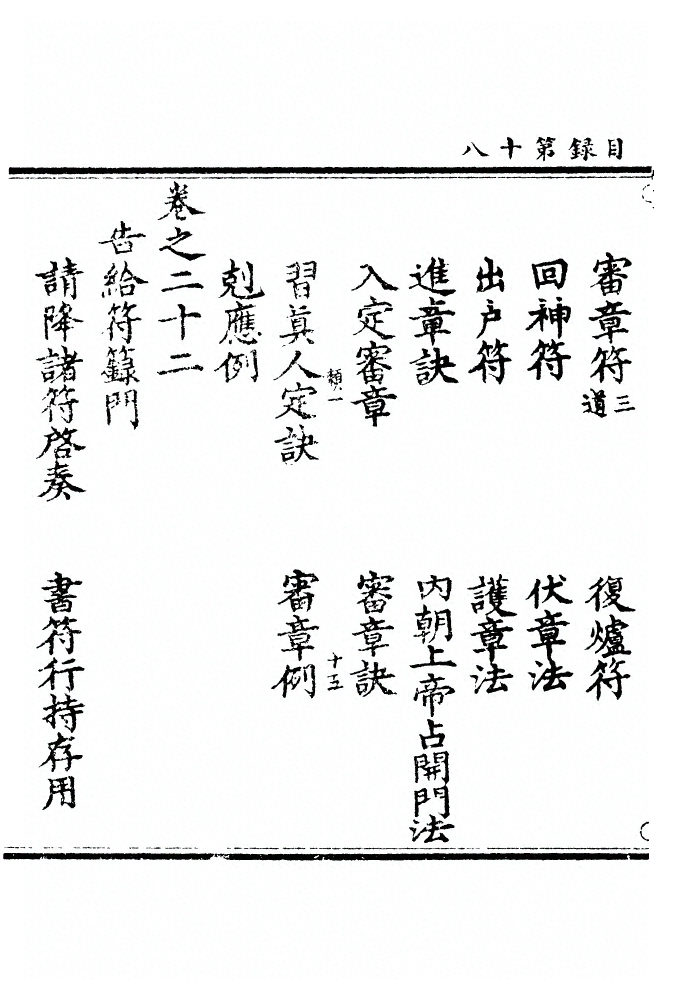 目録第十八
審章符三道　復爐符
回神符　伏章法
出戶符　護章法
進章訣　內朝上帝占開門法
入定審章　審章訣
類一　十五
習眞人定訣　審章例
剋應例
卷之二十二
告給符籙門
請降諸符啓奏　書符行持存用